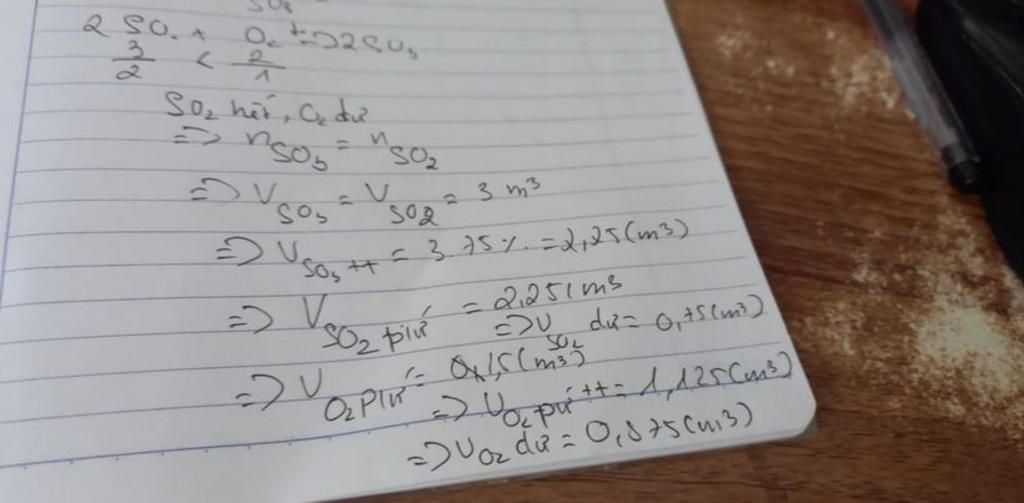 SO₃
2 SO₂ + O₂ t°=> 2SO₃
3/2 < 2/1
SO₂ hết, O₂ dư
=> nSO₃ = nSO₂
=> VSO₃ = VSO₂ = 3 m³
=> VSO₃ tt = 3.75% = 2,25(m³)
=> VSO₂ pứ = 2,25(m³
=> VSO₂ dư = 0,75(m³)
=> VO₂ pứ = 1,5(m³)
=> VO₂ pứ tt = 1,125(m³)
=> VO₂ dư = 0,875(m³)